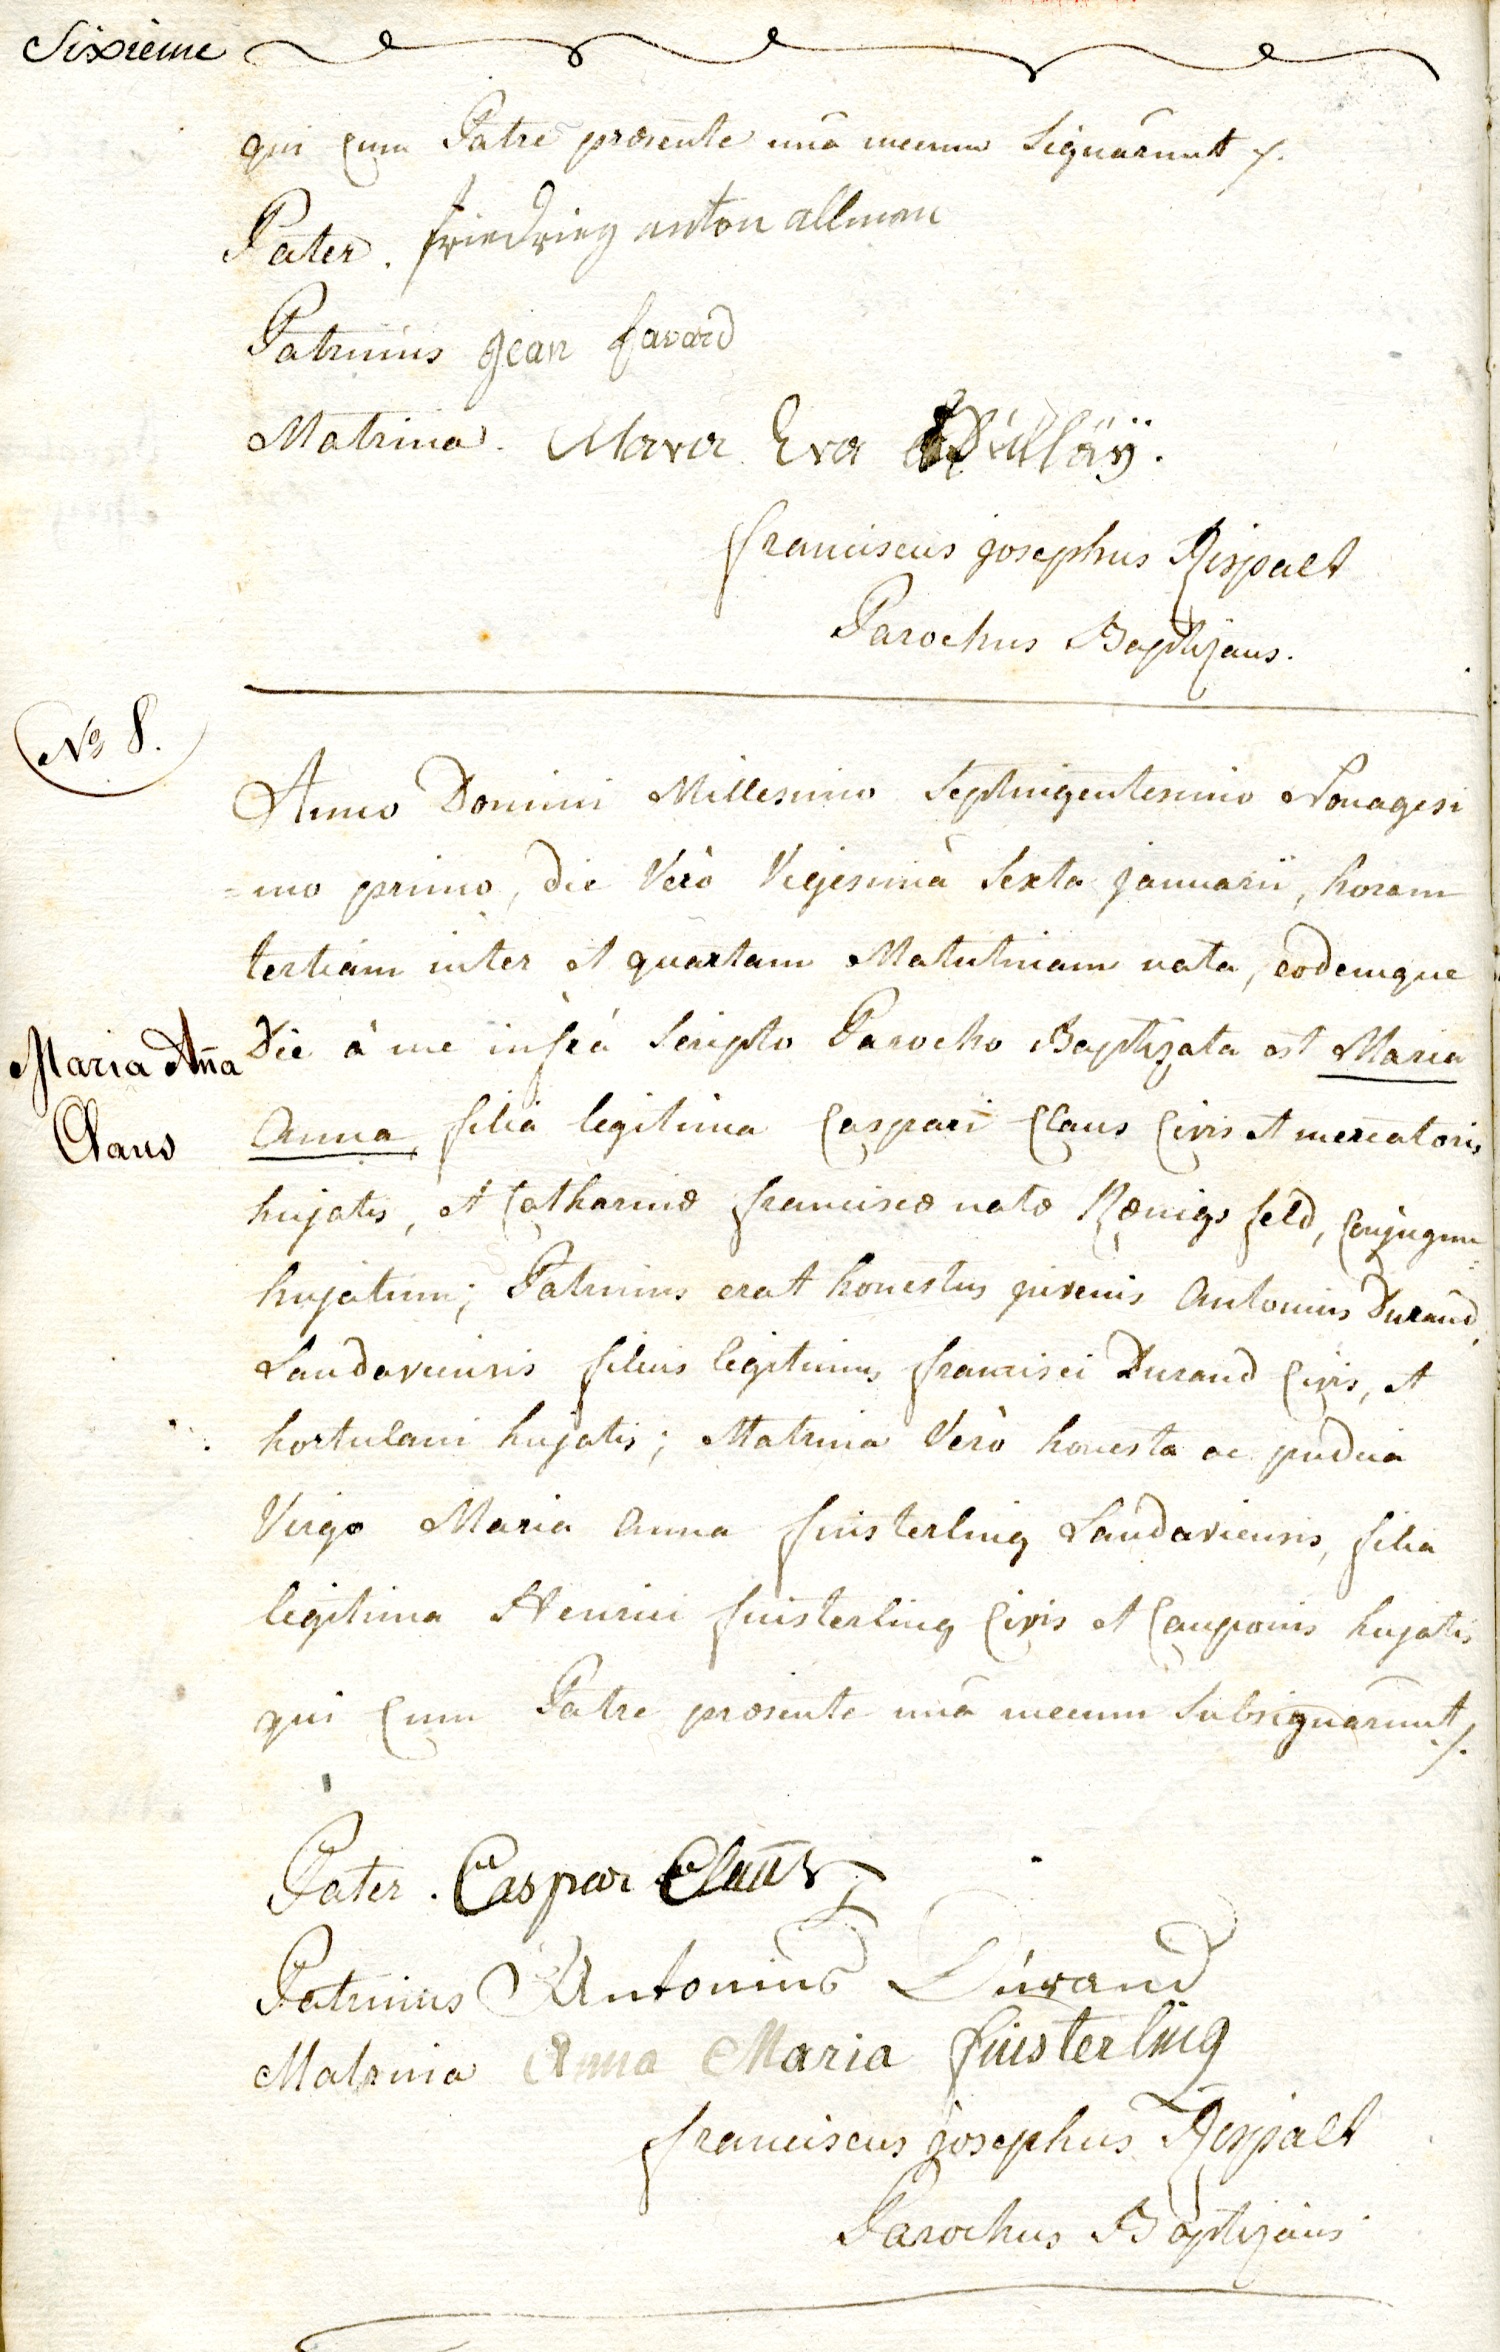 Sixième
qui Cum Patre præsente unâ mecum Signârunt ./.
Pater. friedrieg anton allman
Patrinus jean favard
Matrina. Mara Eva
franciscus josephus Rispalt
Parochus Baptizans.
No 8.
Anno Domini Millesimo Septingentesimo Nonagesi
=mo primo, die Verò Vigesimâ Sexta januarii, horam
tertiam inter et quartam Matutinam nata, eodemque
Die à me infrà Scripto Parocho Baptizata est Maria
Maria Aña
Claus
Anna filia legitima Caspari Claus Civis et mercatoris
hujatis, et Catharinæ franciscæ natæ Kœnigsfeld, Conjugum
hujatium; Patrinus erat honestus juvenis Antonius Durand,
Landaviensis filius legitimus francisci Durand Civis, et
hortulani hujatis; Matrina Verò honesta ac pudica
Virgo Maria Anna finsterling Landaviensis, filia
legitima Henrici finsterling Civis et Cauponis hujatis
qui Cum Patre præsente unâ mecum Subsignârunt ./.
Pater. Caspar Claus
Patrinus Antonius Durand
Matrina Anna Maria finsterling
franciscus josephus Rispalt
Parochus Baptizans